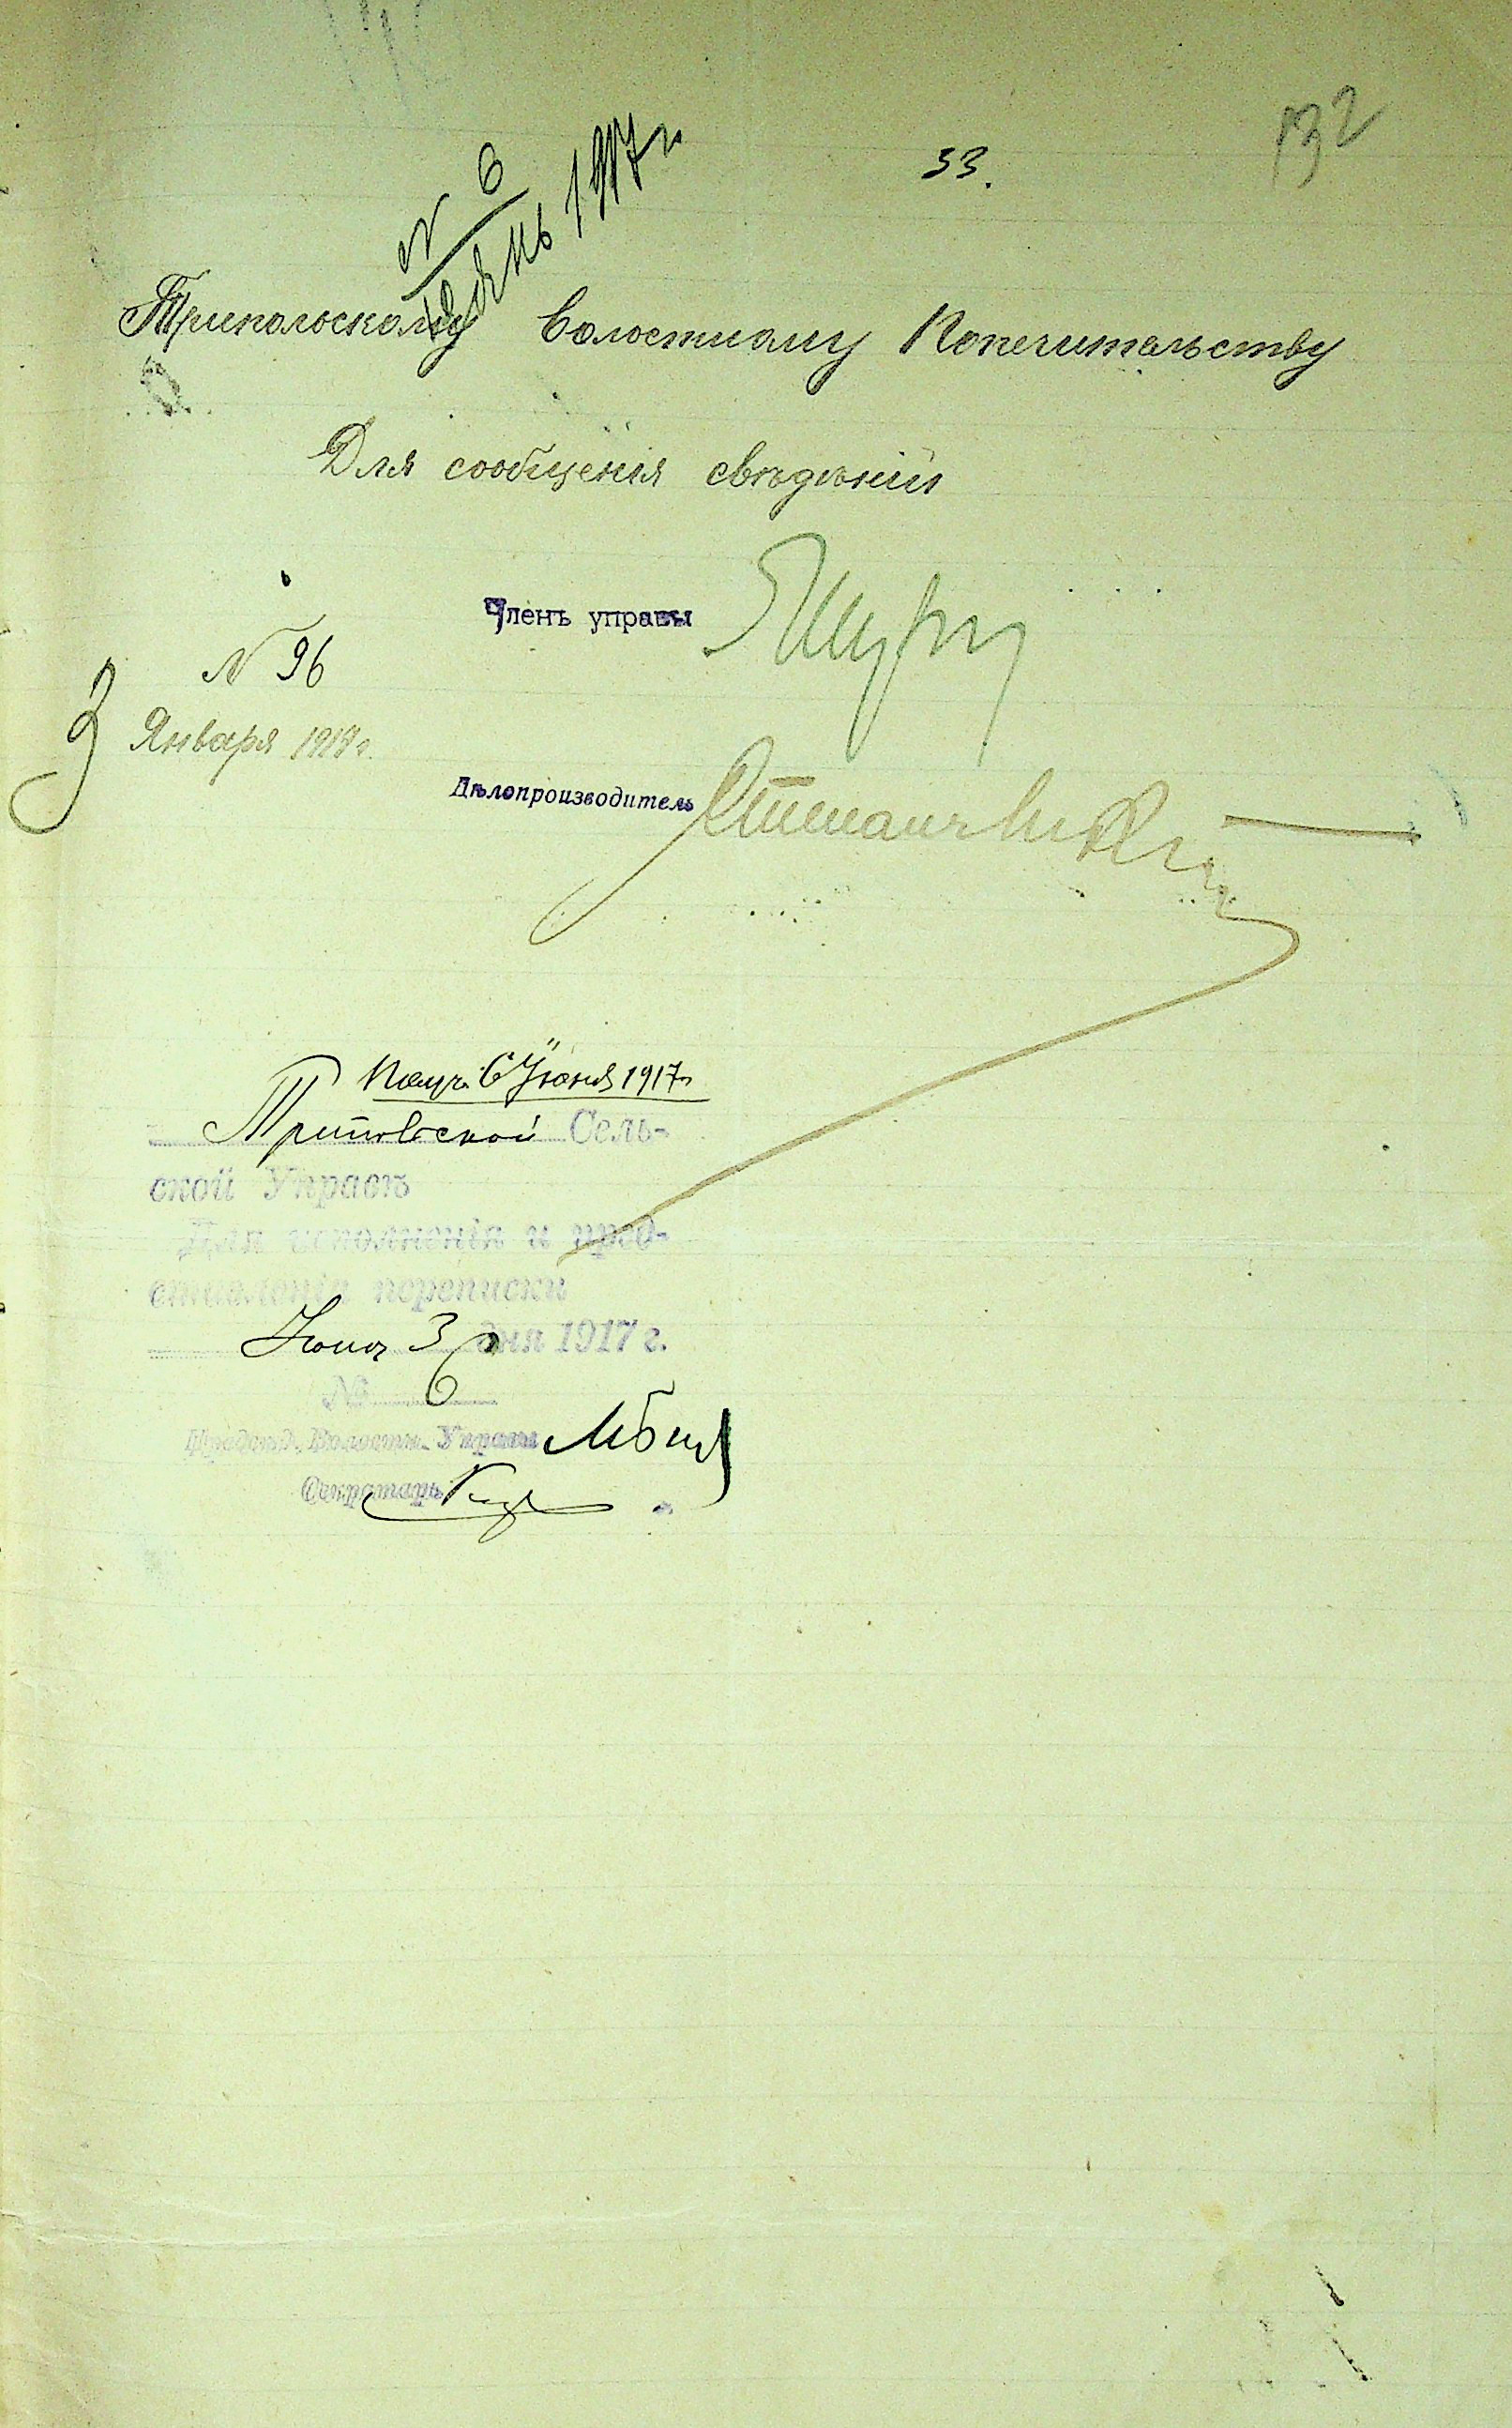 132
33.
№ 6
1917 г
Трипольскому Волостному Попечительству
Для сообщенія свѣдѣній
Членъ управы
№ 96
3 Января 1917 г.
Дѣлопроизводитель
Получ. 6 Іюня 1917 г
Сель-
ской Управѣ
Для исполненія и пред-
ставленія переписки
Іюня 3 дня 1917 г.
№ 6
Предсѣд. Волостн. Управы
Секретарь